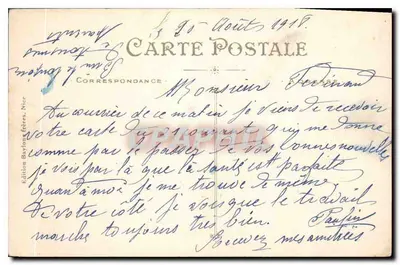 Août 1918
CARTE POSTALE
CORRESPONDANCE
Monsieur Ferdinand
Au courrier de ce matin je viens de recevoir
votre carte du courant qui me donne
comme par ce passé de vos bonnes nouvelles
je vois par là que la santé est parfaite
quant à moi je me trouve de même
De votre côté je vois que le travail
marche toujours très bien.
Recevez mes amitiés
Edition Bayloux Frères, Nice